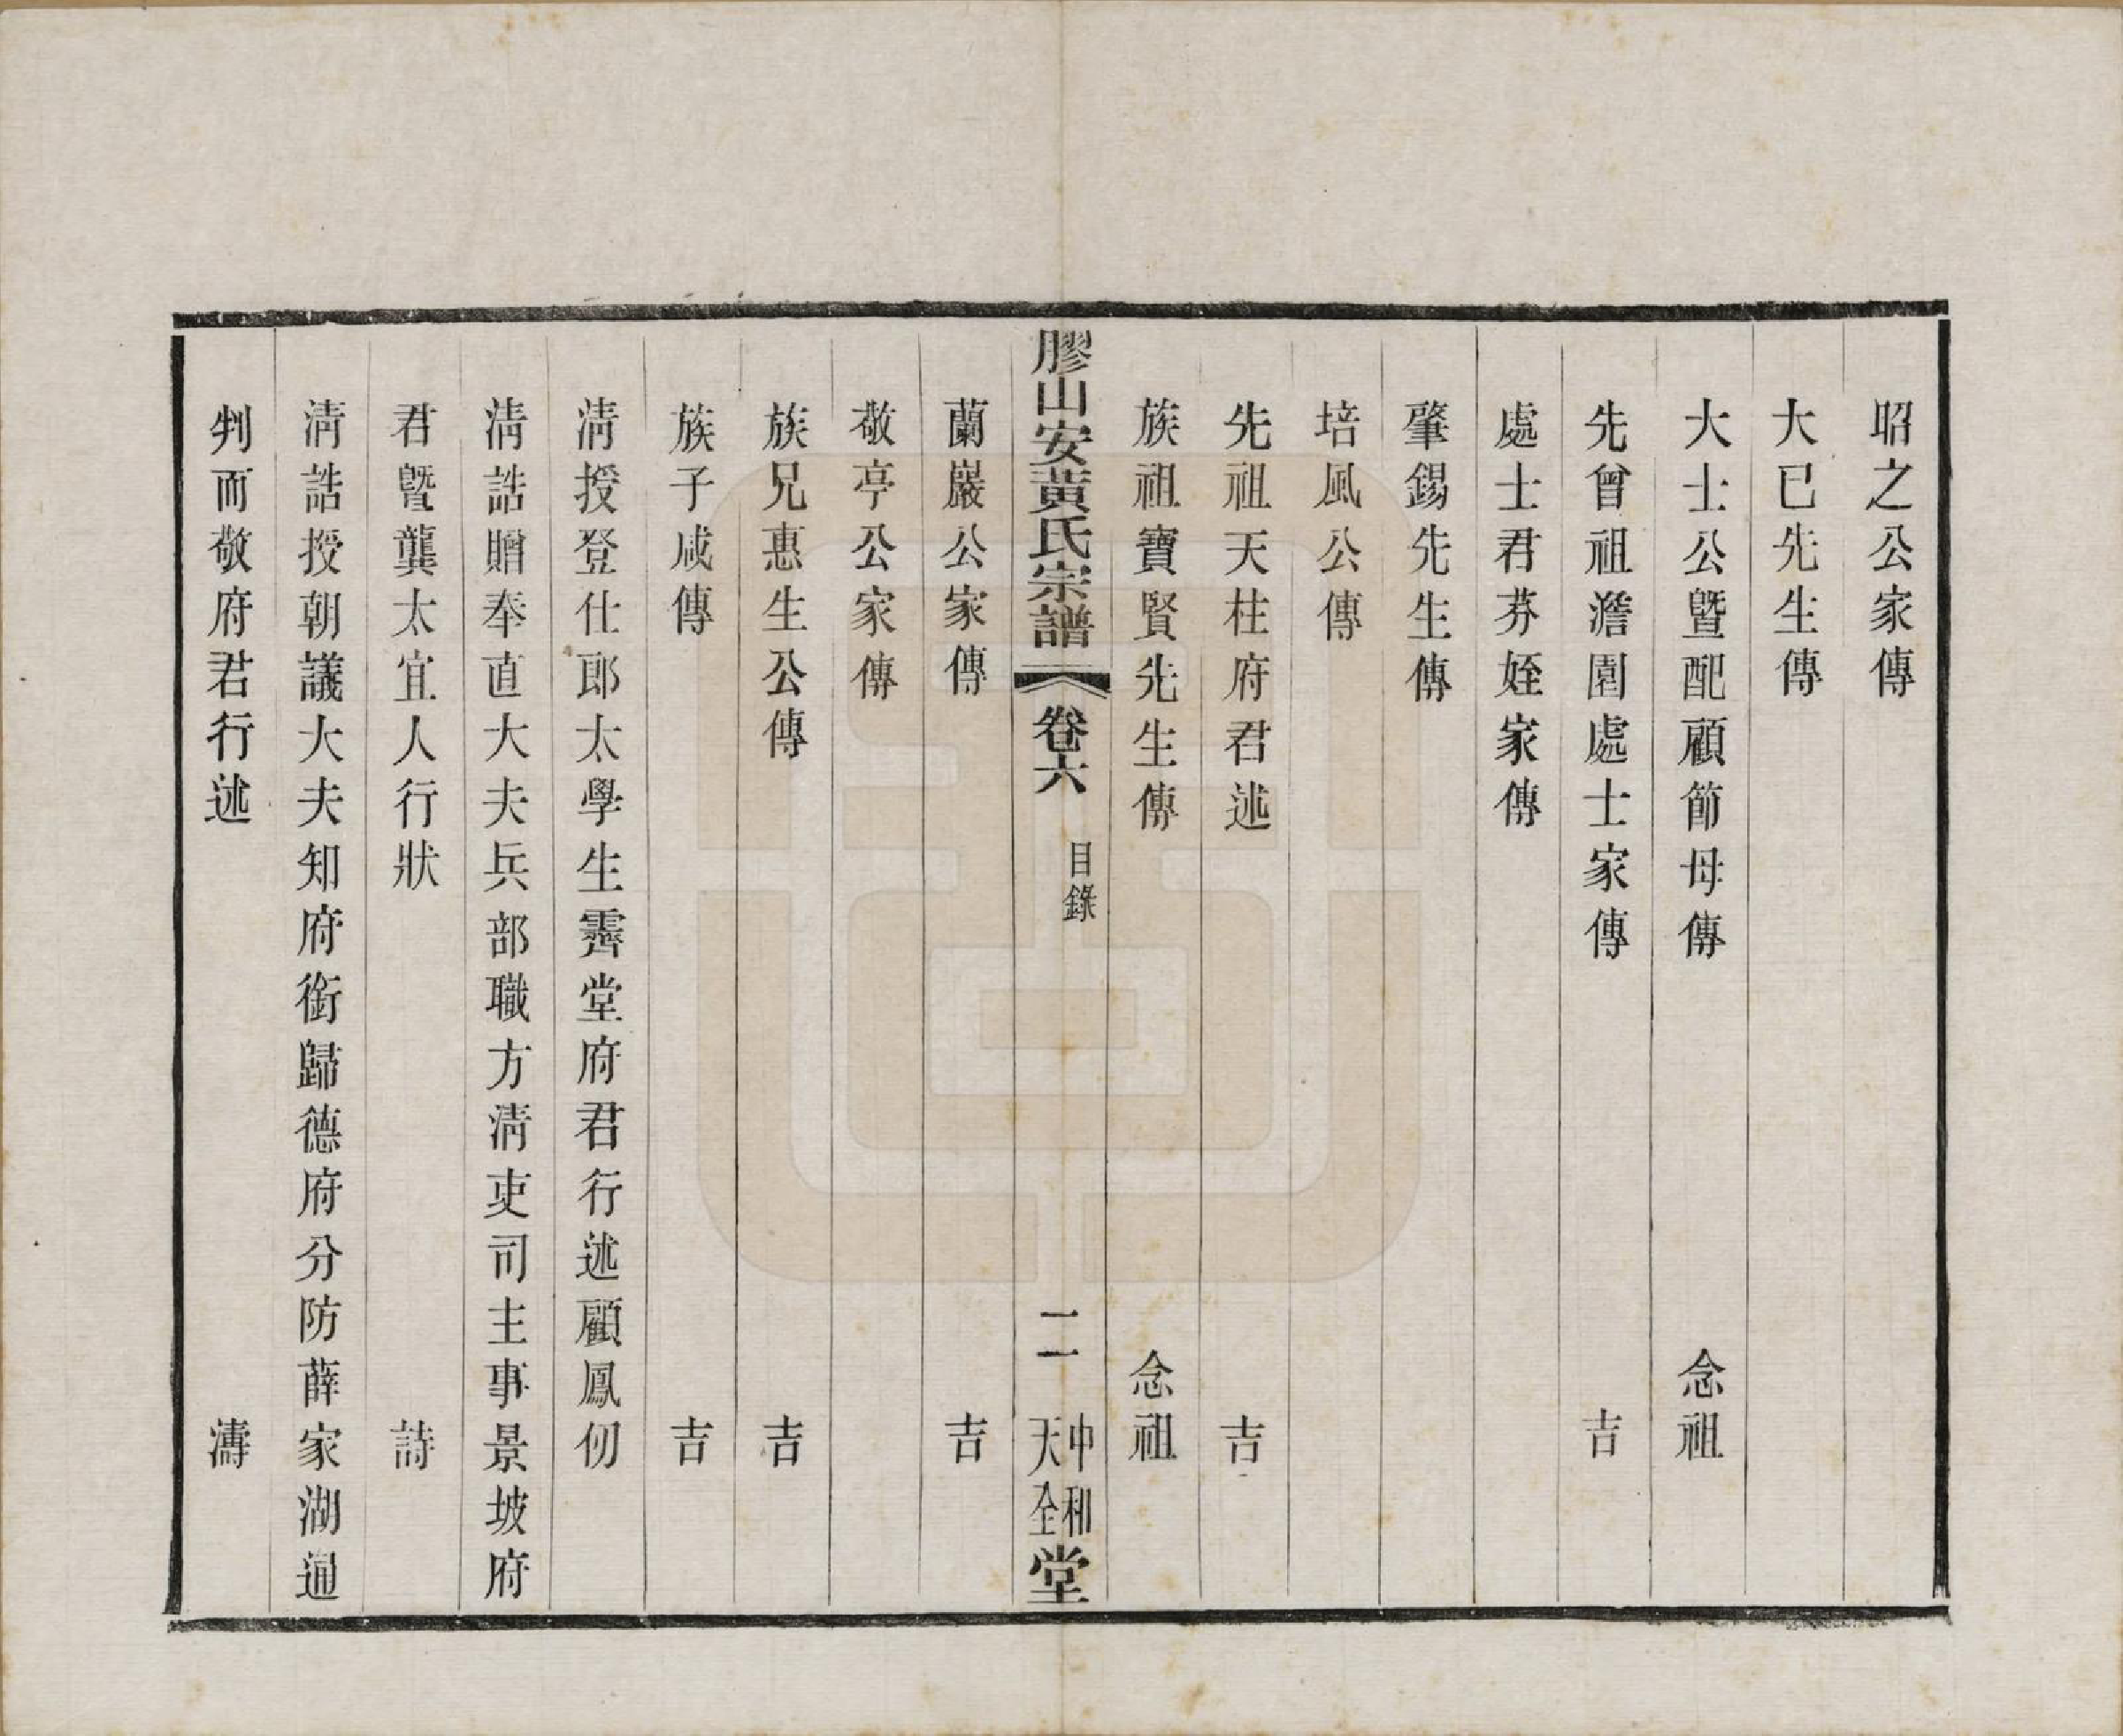 昭之公家傳
大已先生傳
大士公曁配顧節母傳 念祖
先曾祖澹園處士家傳 吉
處士君芥姪家傳
肇錫先生傳
培風公傳
先祖天柱府君述 吉
族祖寶賢先生傳 念祖
膠山安黃氏宗譜 卷六 目錄 二 中和天全堂
蘭巖公家傳 吉
敬亭公家傳
族兄惠生公傳 吉
族子咸傳 吉
淸授登仕郎太學生霽堂府君行述顧鳳仞
淸誥贈奉直大夫兵部職方淸吏司主事景坡府
君曁龔太宜人行狀 詩
淸誥授朝議大夫知府銜歸德府分防薛家湖通
判而敬府君行述 濤